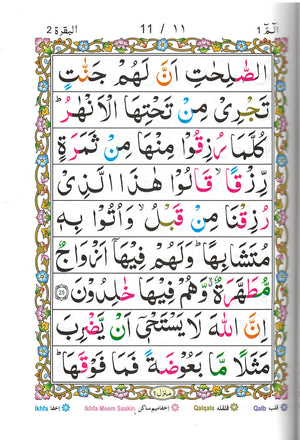 البقرة 2 11 / ١١ الٓمّٓ 1
الصّٰلِحٰتِ اَنَّ لَهُمْ جَنّٰتٍ
تَجْرِیْ مِنْ تَحْتِهَا الْاَنْهٰرُ ؕ
كُلَّمَا رُزِقُوْا مِنْهَا مِنْ ثَمَرَةٍ
رِّزْقًا ۙ قَالُوْا هٰذَا الَّذِیْ
رُزِقْنَا مِنْ قَبْلُ ۙ وَاُتُوْا بِهٖ
مُتَشَابِهًا ؕ وَلَهُمْ فِیْهَاۤ اَزْوَاجٌ
مُّطَهَّرَةٌ ۙ وَّهُمْ فِیْهَا خٰلِدُوْنَ 25
اِنَّ اللّٰهَ لَا یَسْتَحْیٖۤ اَنْ یَّضْرِبَ
مَثَلًا مَّا بَعُوْضَةً فَمَا فَوْقَهَا ؕ
منزل ١
Ikhfa اِخفا Ikhfa Meem Saakin اِخفا میم ساکن Qalqala قلقله Qalb قلب